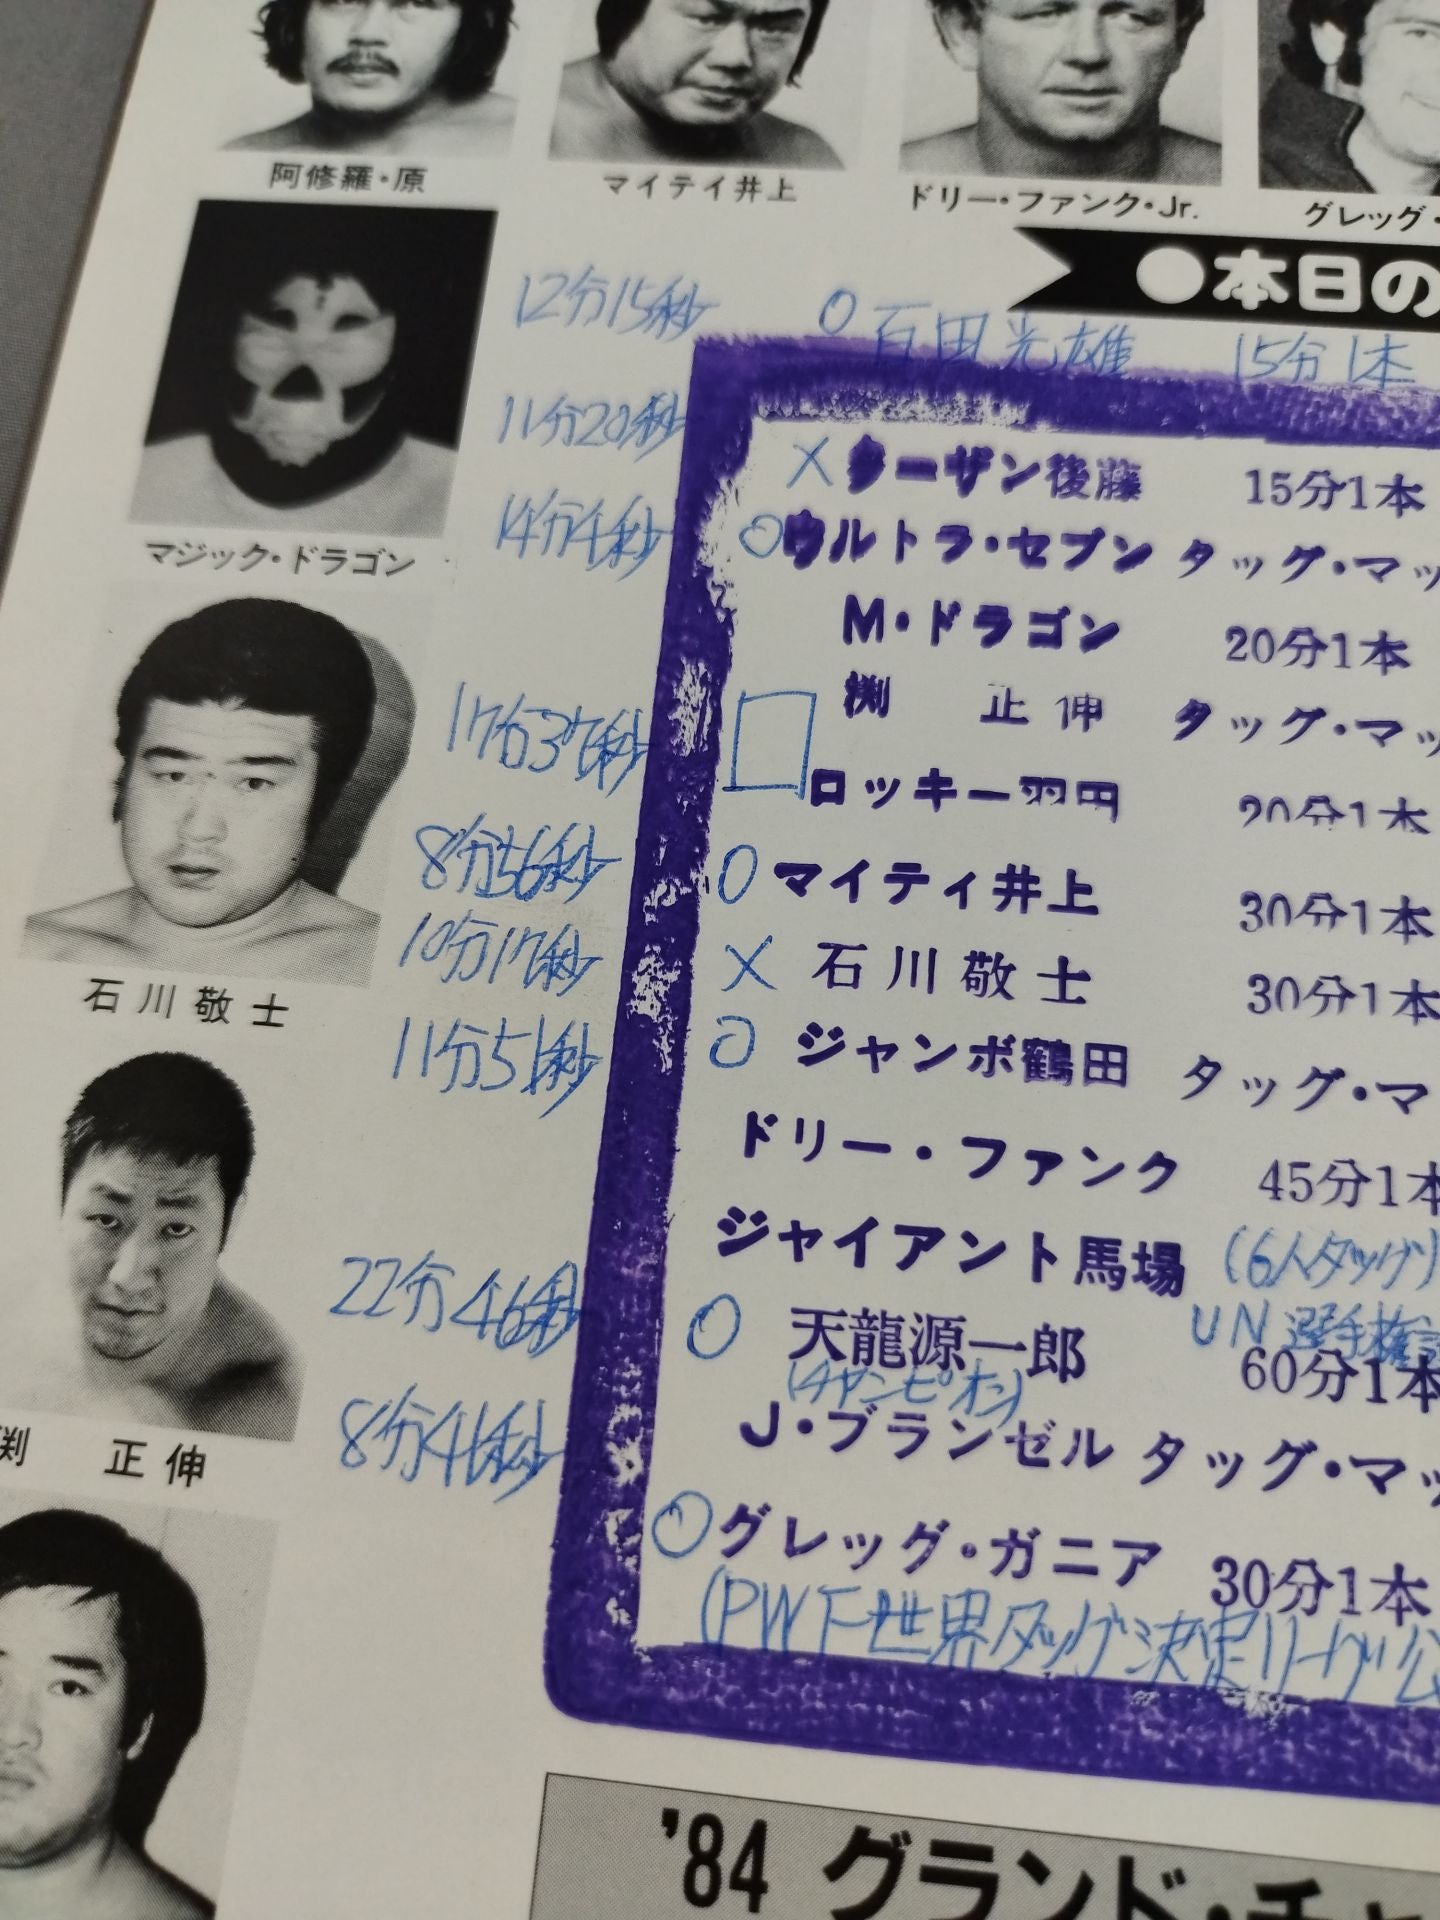 阿修羅・原
マイテイ井上
ドリー・ファンク・Jr.
グレッグ・
●本日の
12分15秒 ○ 百田光雄 15分1本
11分20秒 × ターザン後藤 15分1本
14分4秒 ○ ウルトラ・セブン タッグ・マッ
マジック・ドラゴン
M・ドラゴン 20分1本
渕 正伸 タッグ・マッ
17分37秒 ロッキー羽田 20分1本
8分56秒 ○ マイティ井上 30分1本
10分17秒 × 石川敬士 30分1本
石川敬士
11分51秒 ○ ジャンボ鶴田 タッグ・マ
ドリー・ファンク 45分1本
ジャイアント馬場 (6人タッグ)
UN選手権
22分46秒 ○ 天龍源一郎 60分1本
(チャンピオン)
J・ブランゼル タッグ・マッ
渕 正伸
8分41秒 ○ グレッグ・ガニア 30分1本
(PWF世界タッグ決定リーグ公
'84 グランド・チャ